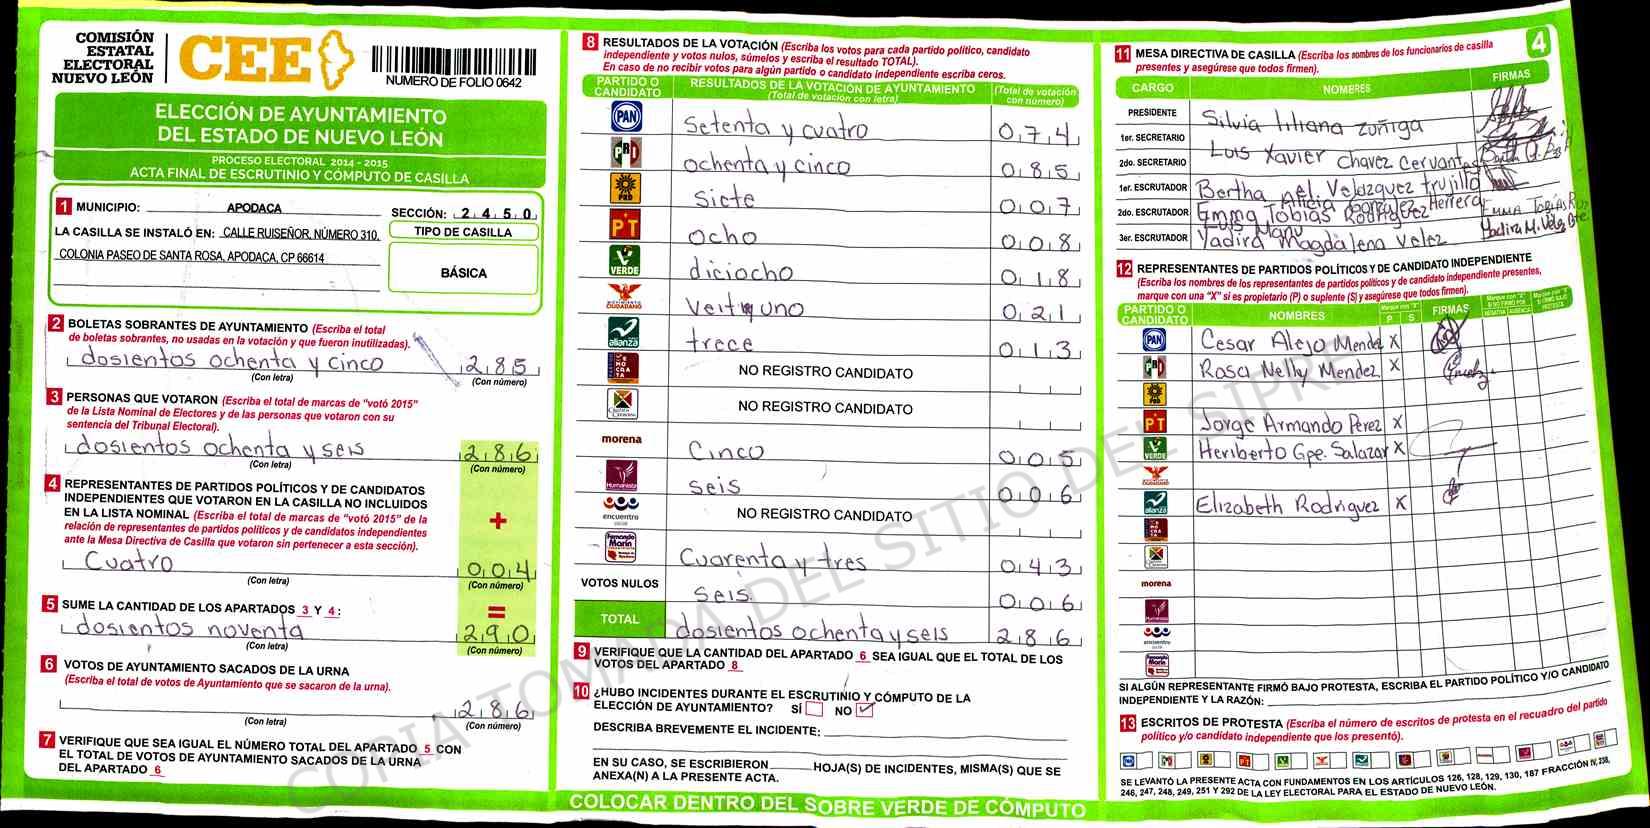 COMISIÓN
ESTATAL
ELECTORAL
NUEVO LEÓN
CEE
NUMERO DE FOLIO 0642
ELECCIÓN DE AYUNTAMIENTO
DEL ESTADO DE NUEVO LEÓN
PROCESO ELECTORAL 2014 - 2015
ACTA FINAL DE ESCRUTINIO Y CÓMPUTO DE CASILLA
1 MUNICIPIO: APODACA SECCIÓN: 2 4 5 0
LA CASILLA SE INSTALÓ EN: CALLE RUISEÑOR, NÚMERO 310,
COLONIA PASEO DE SANTA ROSA, APODACA, CP 66614
TIPO DE CASILLA
BÁSICA
2 BOLETAS SOBRANTES DE AYUNTAMIENTO (Escriba el total
de boletas sobrantes, no usadas en la votación y que fueron inutilizadas).
dosientos ochenta y cinco 2 8 5
(Con letra) (Con número)
3 PERSONAS QUE VOTARON (Escriba el total de marcas de "votó 2015"
de la Lista Nominal de Electores y de las personas que votaron con su
sentencia del Tribunal Electoral).
dosientos ochenta y seis 2 8 6
(Con letra) (Con número)
4 REPRESENTANTES DE PARTIDOS POLÍTICOS Y DE CANDIDATOS
INDEPENDIENTES QUE VOTARON EN LA CASILLA NO INCLUIDOS
EN LA LISTA NOMINAL (Escriba el total de marcas de "votó 2015" de la
relación de representantes de partidos políticos y de candidatos independientes
ante la Mesa Directiva de Casilla que votaron sin pertenecer a esta sección).
+
Cuatro 0 0 4
(Con letra) (Con número)
5 SUME LA CANTIDAD DE LOS APARTADOS 3 Y 4:
=
dosientos noventa 2 9 0
(Con letra) (Con número)
6 VOTOS DE AYUNTAMIENTO SACADOS DE LA URNA
(Escriba el total de votos de Ayuntamiento que se sacaron de la urna).
2 8 6
(Con letra) (Con número)
7 VERIFIQUE QUE SEA IGUAL EL NÚMERO TOTAL DEL APARTADO 5 CON
EL TOTAL DE VOTOS DE AYUNTAMIENTO SACADOS DE LA URNA
DEL APARTADO 6
8 RESULTADOS DE LA VOTACIÓN (Escriba los votos para cada partido político, candidato
independiente y votos nulos, súmelos y escriba el resultado TOTAL).
En caso de no recibir votos para algún partido o candidato independiente escriba ceros.
PARTIDO O CANDIDATO RESULTADOS DE LA VOTACIÓN DE AYUNTAMIENTO (Total de votación con letra) (Total de votación con número)
PAN Setenta y cuatro 0 7 4
PRI ochenta y cinco 0 8 5
PRD siete 0 0 7
PT ocho 0 0 8
VERDE diciocho 0 1 8
MOVIMIENTO CIUDADANO Veityuno 0 2 1
alianza trece 0 1 3
NO REGISTRO CANDIDATO
NO REGISTRO CANDIDATO
morena Cinco 0 0 5
Humanista seis 0 0 6
encuentro NO REGISTRO CANDIDATO
Fernando Marín Cuarenta y tres 0 4 3
VOTOS NULOS seis 0 0 6
TOTAL dosientos ochenta y seis 2 8 6
9 VERIFIQUE QUE LA CANTIDAD DEL APARTADO 6 SEA IGUAL QUE EL TOTAL DE LOS
VOTOS DEL APARTADO 8
10 ¿HUBO INCIDENTES DURANTE EL ESCRUTINIO Y CÓMPUTO DE LA
ELECCIÓN DE AYUNTAMIENTO? SÍ NO ✓
DESCRIBA BREVEMENTE EL INCIDENTE:
EN SU CASO, SE ESCRIBIERON HOJA(S) DE INCIDENTES, MISMA(S) QUE SE
ANEXA(N) A LA PRESENTE ACTA.
COLOCAR DENTRO DEL SOBRE VERDE DE CÓMPUTO
4
11 MESA DIRECTIVA DE CASILLA (Escriba los nombres de los funcionarios de casilla
presentes y asegúrese que todos firmen).
CARGO NOMBRES FIRMAS
PRESIDENTE Silvia liliana Zuñiga
1er. SECRETARIO Luis Xavier Chavez Cervantes
2do. SECRETARIO Bertha Alicia Gonzalez Herrera
1er. ESCRUTADOR nel. Velazquez trujillo
2do. ESCRUTADOR Emma Tobias Rodriguez EMMA TOBIAS
3er. ESCRUTADOR Yadira Magdalena Velez Yadira M. Velez
12 REPRESENTANTES DE PARTIDOS POLÍTICOS Y DE CANDIDATO INDEPENDIENTE
(Escriba los nombres de los representantes de partidos políticos y de candidato independiente presentes,
marque con una "X" si es propietario (P) o suplente (S) y asegúrese que todos firmen).
PARTIDO O CANDIDATO NOMBRES Marque con "X" P S FIRMAS
PAN Cesar Alejo Mendez X
PRI Rosa Nelly Mendez X
PRD
PT Jorge Armando Perez X
VERDE Heriberto Gpe. Salazar X
alianza Elizabeth Rodriguez X
morena
Humanista
encuentro
SI ALGÚN REPRESENTANTE FIRMÓ BAJO PROTESTA, ESCRIBA EL PARTIDO POLÍTICO Y/O CANDIDATO
INDEPENDIENTE Y LA RAZÓN:
13 ESCRITOS DE PROTESTA (Escriba el número de escritos de protesta en el recuadro del partido
político y/o candidato independiente que los presentó).
SE LEVANTÓ LA PRESENTE ACTA CON FUNDAMENTOS EN LOS ARTÍCULOS 126, 128, 129, 130, 187 FRACCIÓN IV, 238,
246, 247, 248, 249, 251 Y 292 DE LA LEY ELECTORAL PARA EL ESTADO DE NUEVO LEÓN.
COPIA TOMADA DEL SITIO DEL SIPRE